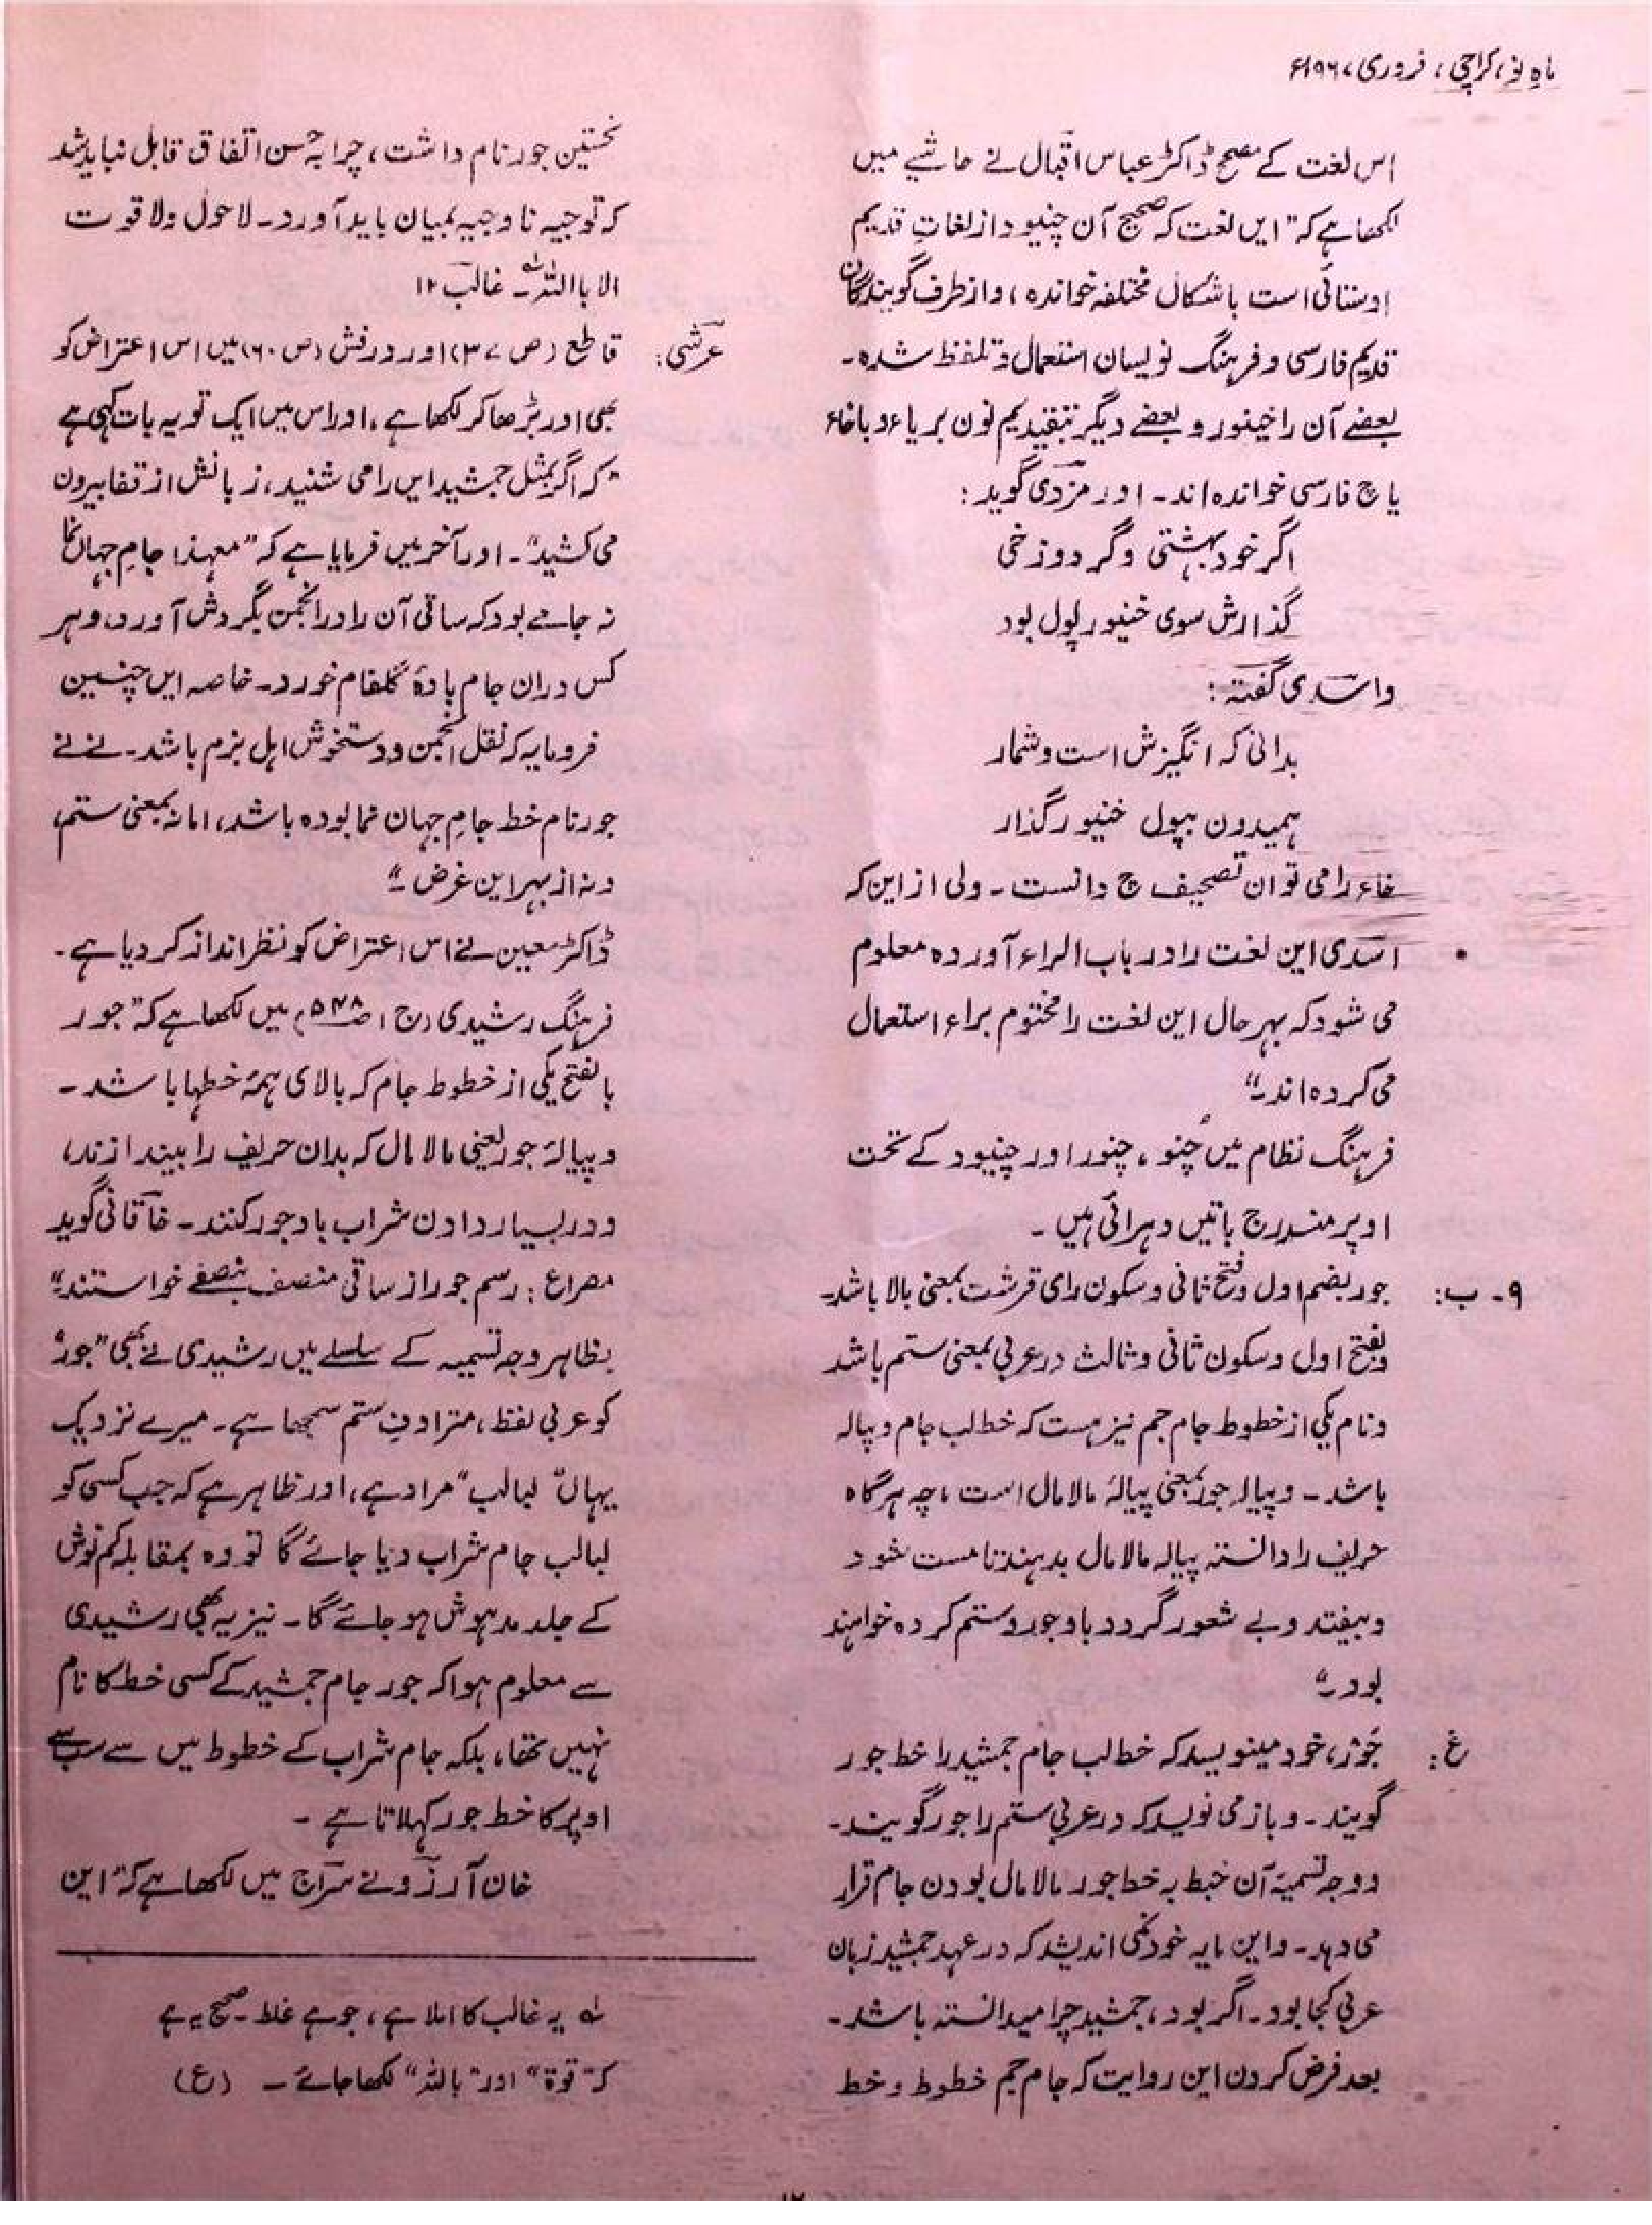 ماہ نو، کراچی، فروری ۱۹۶۷ء
اس لغت کے مصحح ڈاکٹر عباس اقبال نے حاشیے میں
لکھا ہے کہ "ایں لغت کہ صحیح آن چنیود از لغاتِ قدیم
اوستائی است باشکال مختلفہ خواندہ، و از طرف گویندگان
قدیم فارسی و فرہنگ نویسان استعمال و تلفظ شدہ۔
بعضے آن را خینور و بعضے دیگر بتقدیم نون بر یاء و باخاء
یا چ فارسی خواندہ اند۔ اورمزدی گوید:
اگر خود بہشتی وگر دوزخی
گذارش سوی خنیور پول بود
و اسدی گفتہ:
بدانی کہ انگیزش است و شمار
ہمیدون بپول خنیور گذار
خاء را می توان تصحیف چ دانست۔ ولی از این کہ
اسدی این لغت را در باب الراء آوردہ معلوم
می شود کہ بہر حال این لغت را مختوم براء استعمال
می کردہ اند۔"
فرہنگ نظام میں چنو، چنور اور چنیود کے تحت
اوپر مندرج باتیں دہرائی ہیں۔
۹۔ ب: جور بضم اول و فتح ثانی و سکون رای قرشت بمعنی بالا باشد۔
و بفتح اول و سکون ثانی و ثالث در عربی بمعنی ستم باشد
و نام یکی از خطوط جام جم نیز ہست کہ خط لب جام و پیالہ
باشد۔ و پیالہ جور بمعنی پیالۂ مالامال است، چہ ہر گاہ
حریف را دانستہ پیالہ مالامال بدہند تا مست شود
و بیفتد و بے شعور گردد باو جور و ستم کردہ خواہند
بود۔"
غ: جَور، خود مینویسد کہ خط لب جام جمشید را خط جور
گویند۔ و باز می نویسد کہ در عربی ستم را جور گویند۔
و وجہ تسمیۂ آن خبط بہ خط جور مالامال بودن جام قرار
می دہد۔ و این مایہ خود نمی اندیشد کہ در عہد جمشید زبان
عربی کجا بود۔ اگر بود، جمشید چرا میدانستہ باشد۔
بعد فرض کردن این روایت کہ جام جم خطوط و خط
نخستین جور نام داشت، چرا بہ حسن اتفاق قابل نباید شد
کہ توجیہ نا وجیہ بمیان باید آورد۔ لاحول ولا قوت
الا با اللہ۔ لہ غالب ۱۲
عرشی: قاطع (ص ۳۷) اور درفش (ص ۶۰) میں اس اعتراض کو
بھی اور بڑھا کر لکھا ہے، اور اس میں ایک تو یہ بات کہی ہے
"کہ اگر بمثل جمشید ایں را می شنید، زبانش از قفا بیرون
می کشید"۔ اور آخر میں فرمایا ہے کہ "معہذا جامِ جہاں نما
نہ جامے بود کہ ساقی آن را در انجمن بگردش آورد، و ہر
کس دران جام بادۂ گلفام خورد۔ خاصہ ایں چنیں
فرومایہ کہ نقل انجمن و دستخوش اہل بزم باشد۔ نے نے
جور نام خط جامِ جہان نما بودہ باشد، اما نہ بمعنی ستم،
و نہ از بہر این غرض۔"
ڈاکٹر معین نے اس اعتراض کو نظر انداز کر دیا ہے۔
فرہنگ رشیدی (ج ۱ ص ۵۴۸) میں لکھا ہے کہ "جور
بالفتح یکی از خطوط جام کہ بالای ہمۂ خطہا باشد۔
و پیالۂ جور یعنی مالامال کہ بدان حریف را بیندازند،
و در بسیار دادن شراب باو جور کنند۔ خاقانی گوید
مصراع: رسم جور از ساقی منصف بنصفے خواستند"
بظاہر وجہ تسمیہ کے سلسلے میں رشیدی نے بھی "جور"
کو عربی لفظ، مترادفِ ستم سمجھا ہے۔ میرے نزدیک
یہاں "لبالب" مراد ہے، اور ظاہر ہے کہ جب کسی کو
لبالب جام شراب دیا جائے گا تو وہ بمقابلہ کم نوش
کے جلد مدہوش ہو جائے گا۔ نیز یہ بھی رشیدی
سے معلوم ہوا کہ جور جام جمشید کے کسی خط کا نام
نہیں تھا، بلکہ جام شراب کے خطوط میں سے سب سے
اوپر کا خط جور کہلاتا ہے۔
خان آرزو نے سراج میں لکھا ہے کہ "این
لہ یہ غالب کا املا ہے، جو ہے غلط۔ صحیح یہ ہے
کہ "قوۃ" اور "باللہ" لکھا جائے۔ (ع)
۱۲